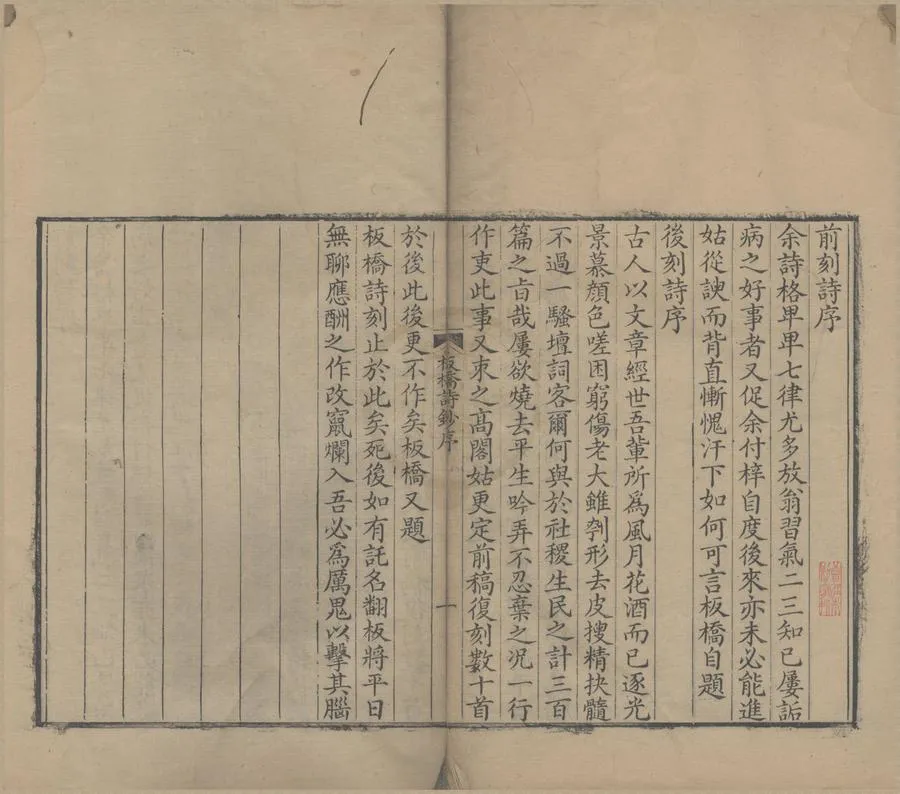 前刻詩序
余詩格卑卑七律尤多放翁習氣二三知己屢詬
病之好事者又促余付梓自度後來亦未必能進
姑從諛而背直慚愧汗下如何可言板橋自題
後刻詩序
古人以文章經世吾輩所為風月花酒而已逐光
景慕顏色嗟困窮傷老大雖刳形去皮搜精抉髓
不過一騷壇詞客爾何與於社稷生民之計三百
篇之旨哉屢欲燒去平生吟弄不忍棄之况一行
作吏此事又束之高閣姑更定前稿復刻數十首
板橋詩鈔序
一
於後此後更不作矣板橋又題
板橋詩刻止於此矣死後如有託名翻板將平日
無聊應酬之作改竄爛入吾必為厲鬼以擊其腦